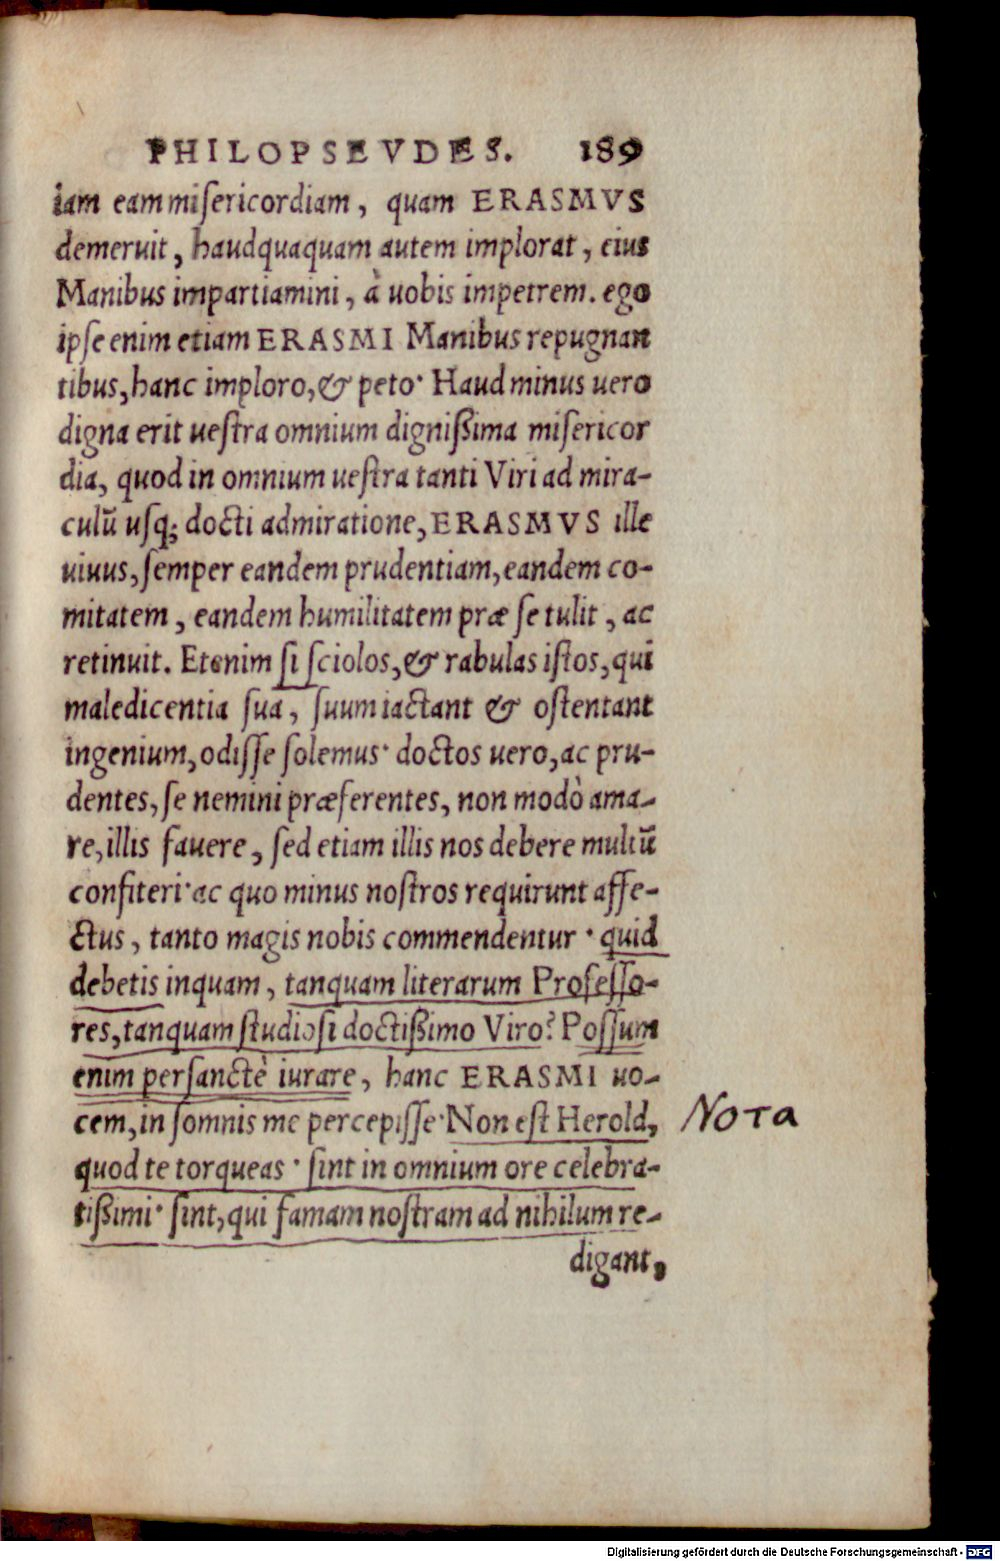 PHILOPSEVDES. 189
iam eam miſericordiam, quam ERASMVS
demeruit, haudquaquam autem implorat, eius
Manibus impartiamini, à uobis impetrem. ego
ipſe enim etiam ERASMI Manibus repugnan
tibus, hanc imploro, & peto· Haud minus uero
digna erit ueſtra omnium digniſsima miſericor
dia, quod in omnium ueſtra tanti Viri ad mira-
culũ uſq; docti admiratione, ERASMVS ille
uiuus, ſemper eandem prudentiam, eandem co-
mitatem, eandem humilitatem præ ſe tulit, ac
retinuit. Etenim ſi ſciolos, & rabulas iſtos, qui
maledicentia ſua, ſuum iactant & oſtentant
ingenium, odiſſe ſolemus· doctos uero, ac pru-
dentes, ſe nemini præferentes, non modò ama-
re, illis fauere, ſed etiam illis nos debere multũ
confiteri· ac quo minus noſtros requirunt affe-
ctus, tanto magis nobis commendentur· quid
debetis inquam, tanquam literarum Profeſſo-
res, tanquam ſtudioſi doctiſsimo Viro? Poſſum
enim perſanctè iurare, hanc ERASMI uo-
cem, in ſomnis me percepiſſe· Non eſt Herold,
Nota
quod te torqueas· ſint in omnium ore celebra-
tiſsimi· ſint, qui famam noſtram ad nihilum re-
digant,
Digitalisierung gefördert durch die Deutsche Forschungsgemeinschaft - DFG